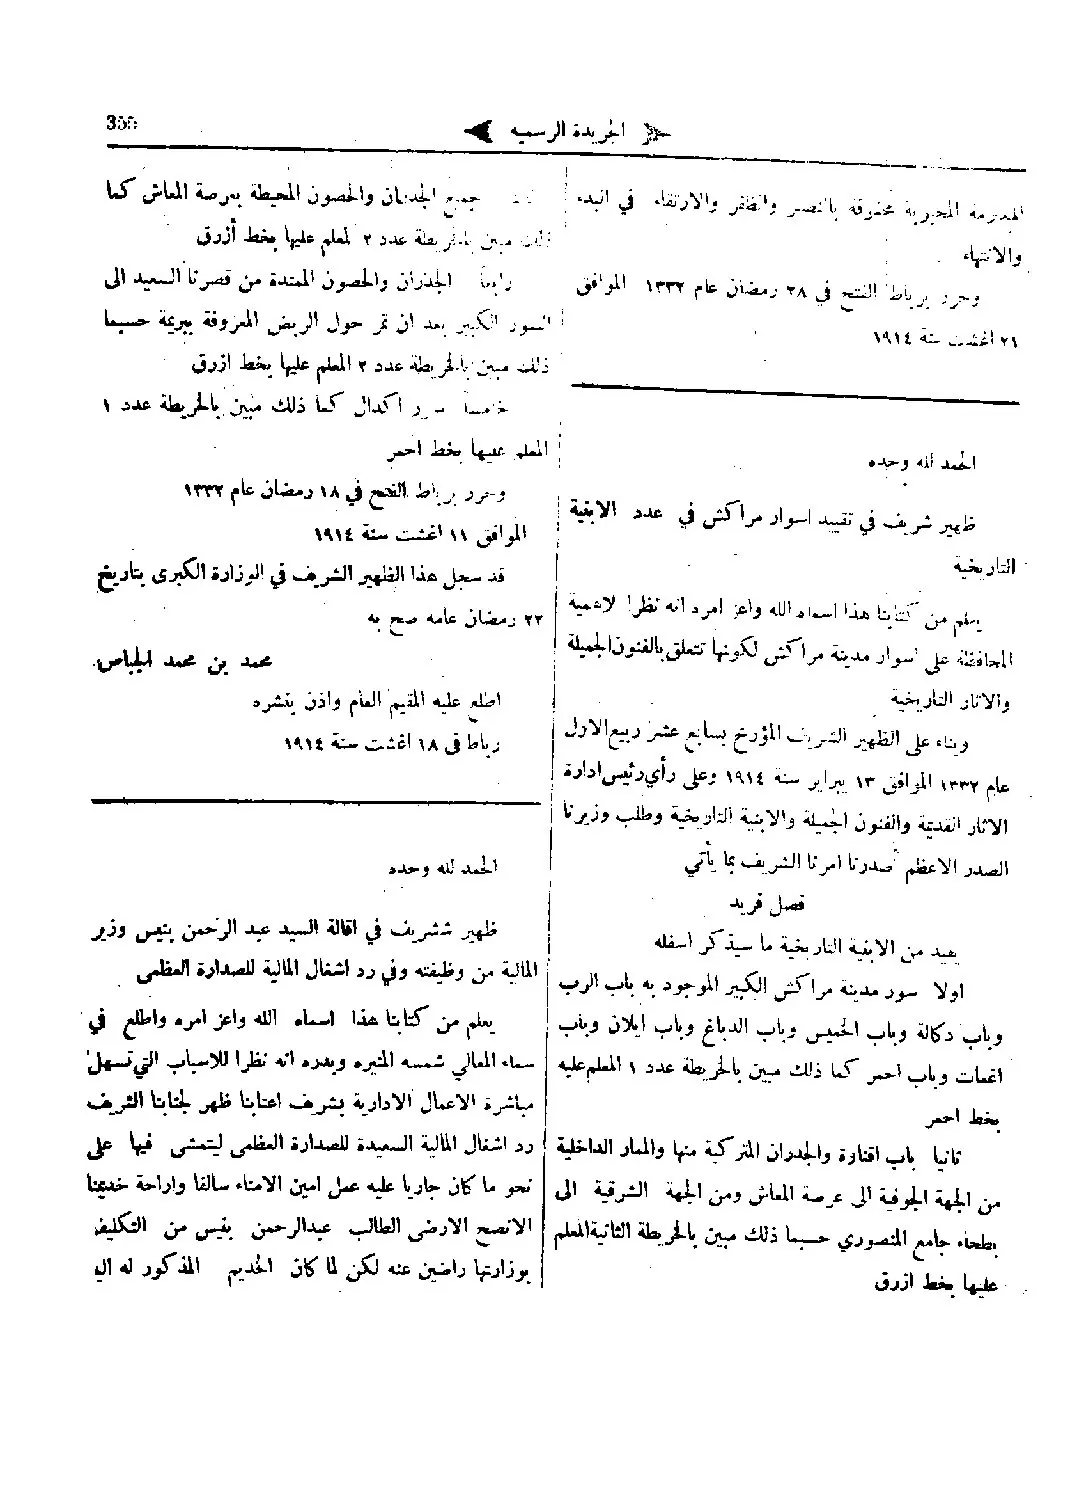 الجريدة الرسمية
355
المدرسة المحبوبة محفوفة بالنصر والظفر والارتقاء في البدء
والانتهاء
وحرر برباط الفتح في ٢٨ رمضان عام ١٣٣٢ الموافق
٢١ اغشت سنة ١٩١٤
الحمد لله وحده
ظهير شريف في تقييد اسوار مراكش في عدد الابنية
التاريخية
يعلم من كتابنا هذا اسماه الله واعز امره انه نظرا لاهمية
المحافظة على اسوار مدينة مراكش لكونها تتعلق بالفنون الجميلة
والاثار التاريخية
وبناء على الظهير الشريف المؤرخ بسابع عشر ربيع الاول
عام ١٣٣٢ الموافق ١٣ يبراير سنة ١٩١٤ وعلى رأي رئيس ادارة
الاثار القديمة والفنون الجميلة والابنية التاريخية وطلب وزيرنا
الصدر الاعظم أصدرنا امرنا الشريف بما يأتي
فصل فريد
يعيد من الابنية التاريخية ما سيذكر اسفله
اولا سور مدينة مراكش الكبير الموجود به باب الرب
وباب دكالة وباب الخميس وباب الدباغ وباب ايلان وباب
اغمات وباب احمر كما ذلك مبين بالخريطة عدد ١ المعلم عليه
بخط احمر
ثانيا باب اقناوة والجدران المتركبة منها والممار الداخلية
من الجهة الجوفية الى عرصة المعاش ومن الجهة الشرقية الى
بطحاء جامع المنصوري حسبما ذلك مبين بالخريطة الثانية المعلم
عليها بخط ازرق
جميع الجدران والحصون المحيطة بعرصة المعاش كما
ذلك مبين بالخريطة عدد ٢ لمعلم عليها بخط أزرق
رابعا الجذران والحصون الممتدة من قصرنا السعيد الى
السور الكبير بعد ان تمر حول الربض المعروفة ببريمة حسبما
ذلك مبين بالخريطة عدد ٢ المعلم عليها بخط ازرق
خامسا سور اكدال كما ذلك مبين بالخريطة عدد ١
المعلم عليها بخط احمر
وحرر برباط الفتح في ١٨ رمضان عام ١٣٣٢
الموافق ١١ اغشت سنة ١٩١٤
قد سجل هذا الظهير الشريف في الوزارة الكبرى بتاريخ
٢٢ رمضان عامه صح به
محمد بن محمد الجباص
اطلع عليه المقيم العام واذن بنشره
رباط في ١٨ اغشت سنة ١٩١٤
الحمد لله وحده
ظهير ششريف في اقالة السيد عبد الرحمن بنيس وزير
المالية من وظيفته وفي رد اشغال المالية للصدارة العظمى
يعلم من كتابنا هذا اسماه الله واعز امره واطلع في
سماء المعالي شمسه المنيره وبدره انه نظرا للاسباب التي تسهل
مباشرة الاعمال الادارية بشريف اعتابنا ظهر لجنابنا الشريف
رد اشغال المالية السعيدة للصدارة العظمى ليتمشى فيها على
نحو ما كان جاريا عليه عمل امين الامناء سالفا واراحة خديمنا
الانصح الارضى الطالب عبدالرحمن بنيس من التكليف
بوزارتها راضين عنه لكن لما كان الخديم المذكور له اليد